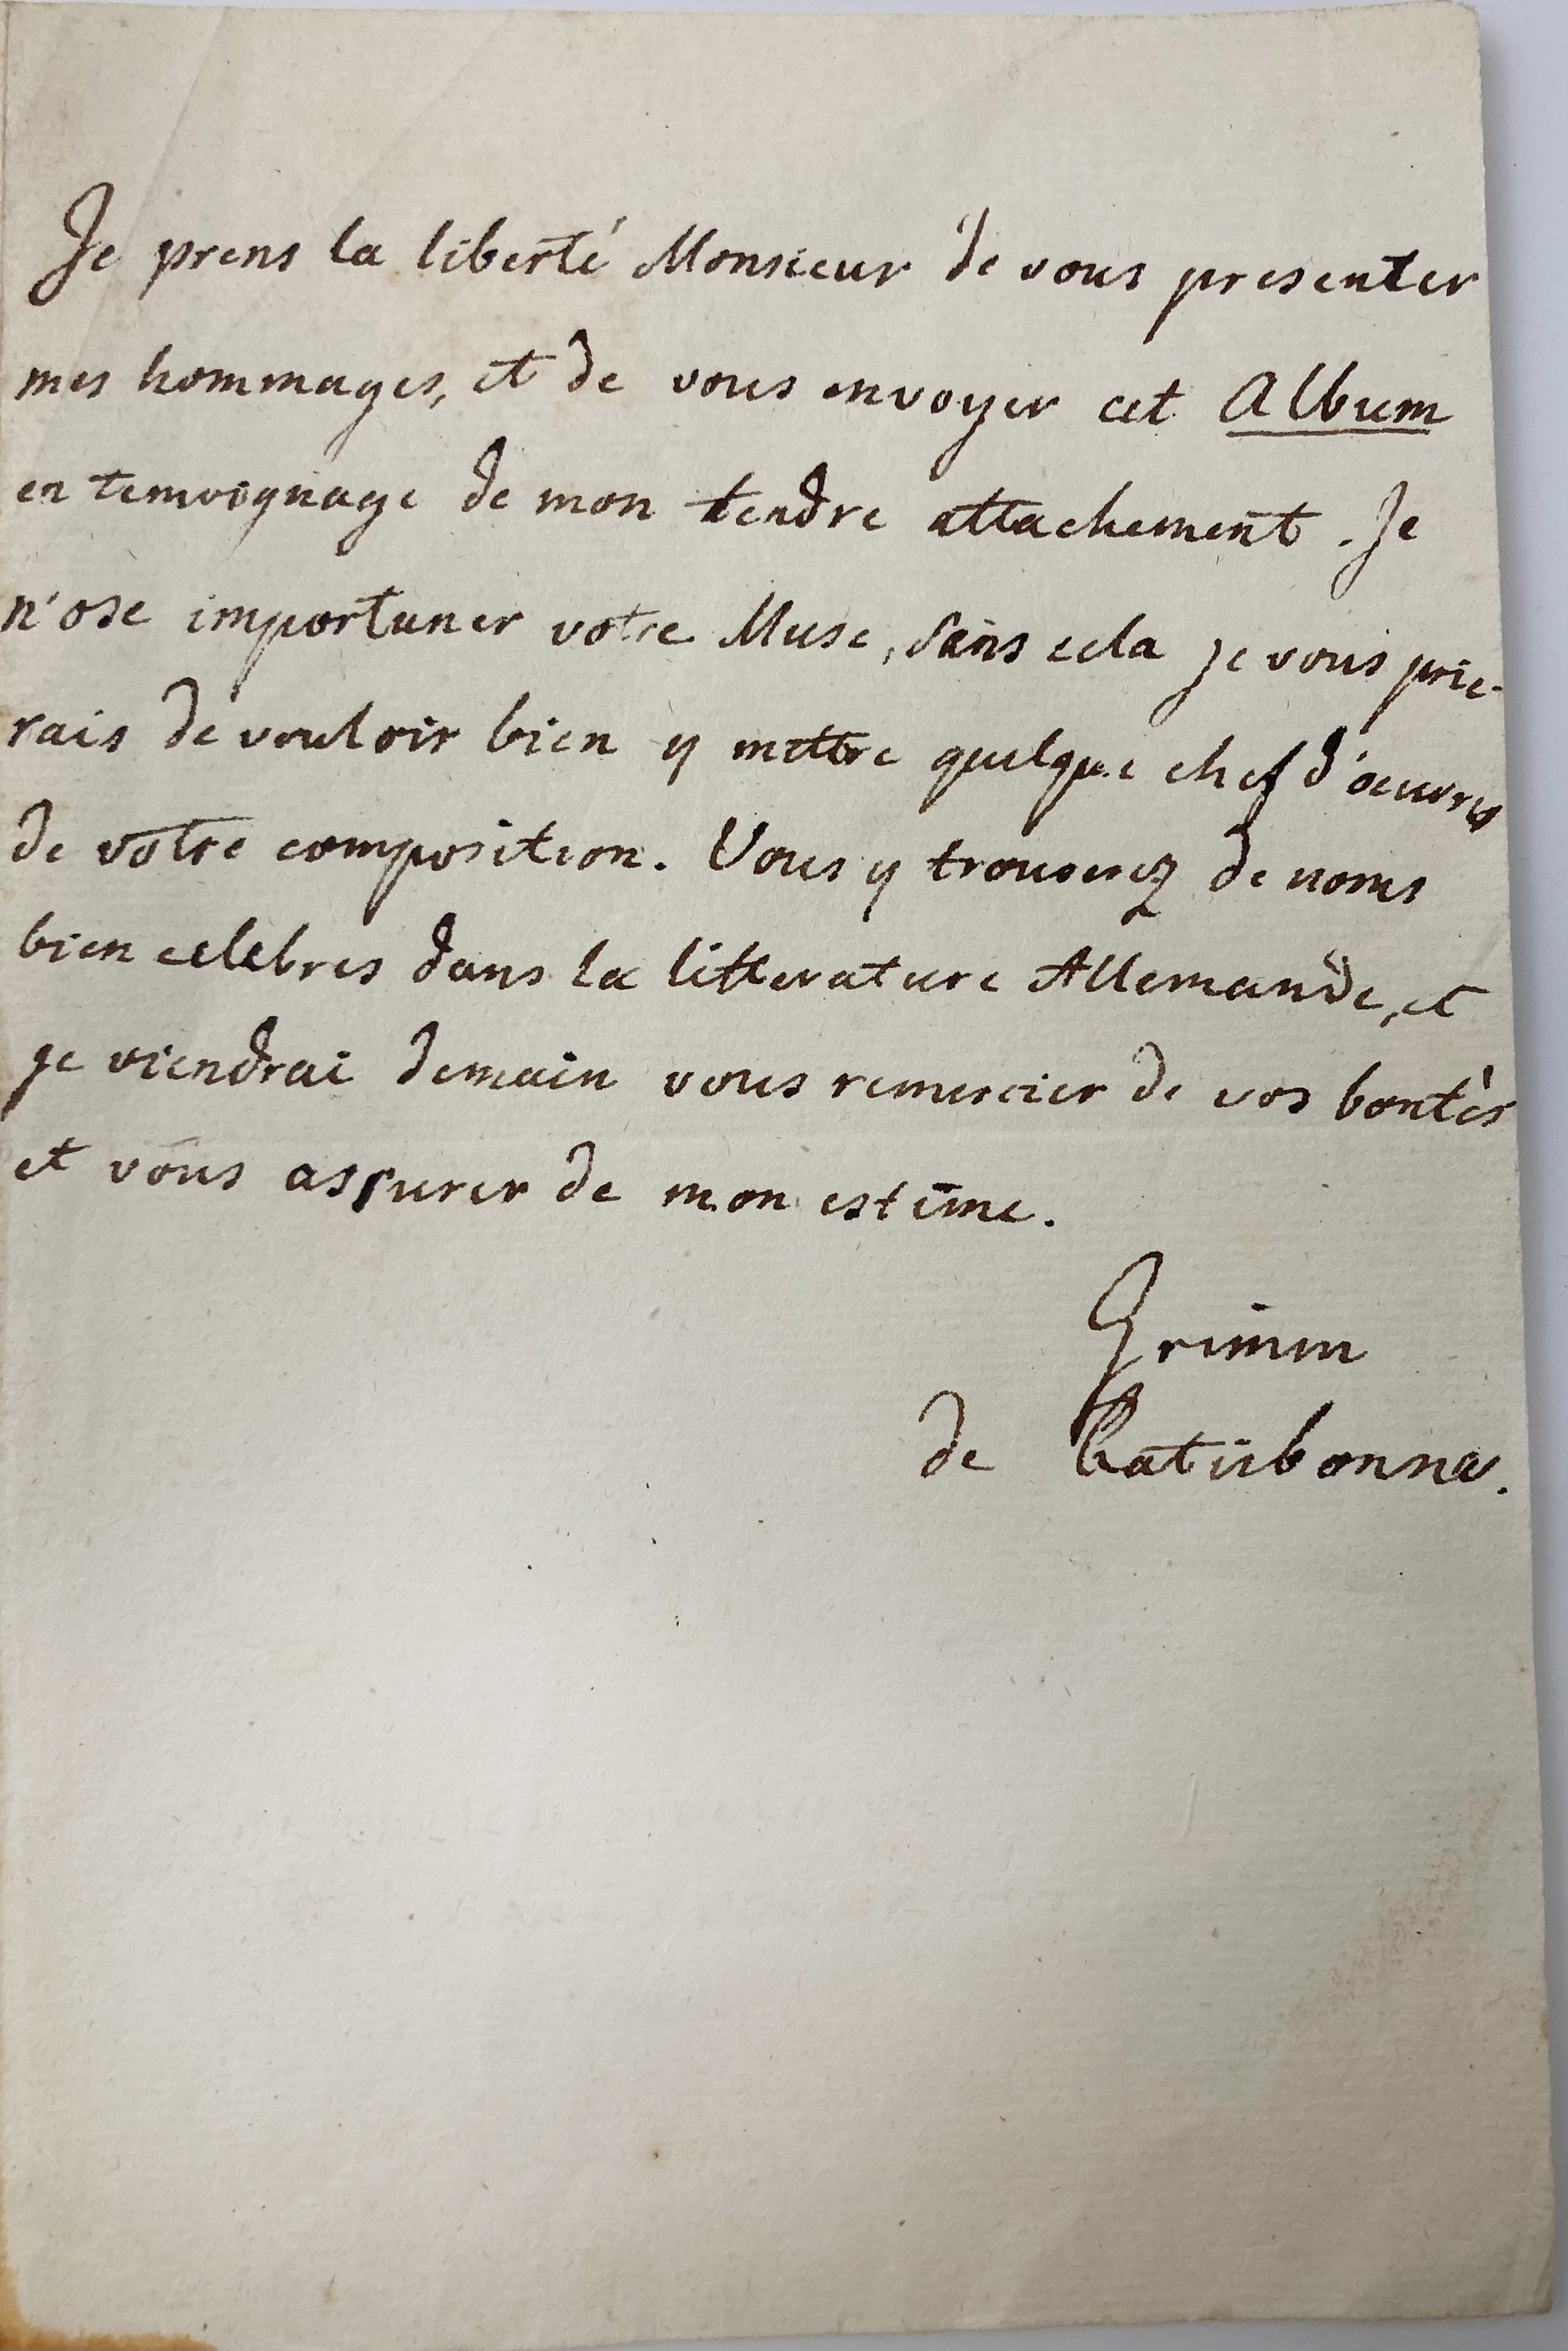 Je prens la liberté Monsieur de vous presenter
mes hommages, et de vous envoyer cet Album
en temoignage de mon tendre attachement. Je
n'ose importuner votre Muse, sans cela je vous prie-
rais de vouloir bien y mettre quelque chef d'oeuvres
de votre composition. Vous y trouverez de noms
bien celebres dans la litterature Allemande, et
je viendrai demain vous remercier de vos bontès
et vous assurer de mon estime.
Grimm
de Ratisbonne.